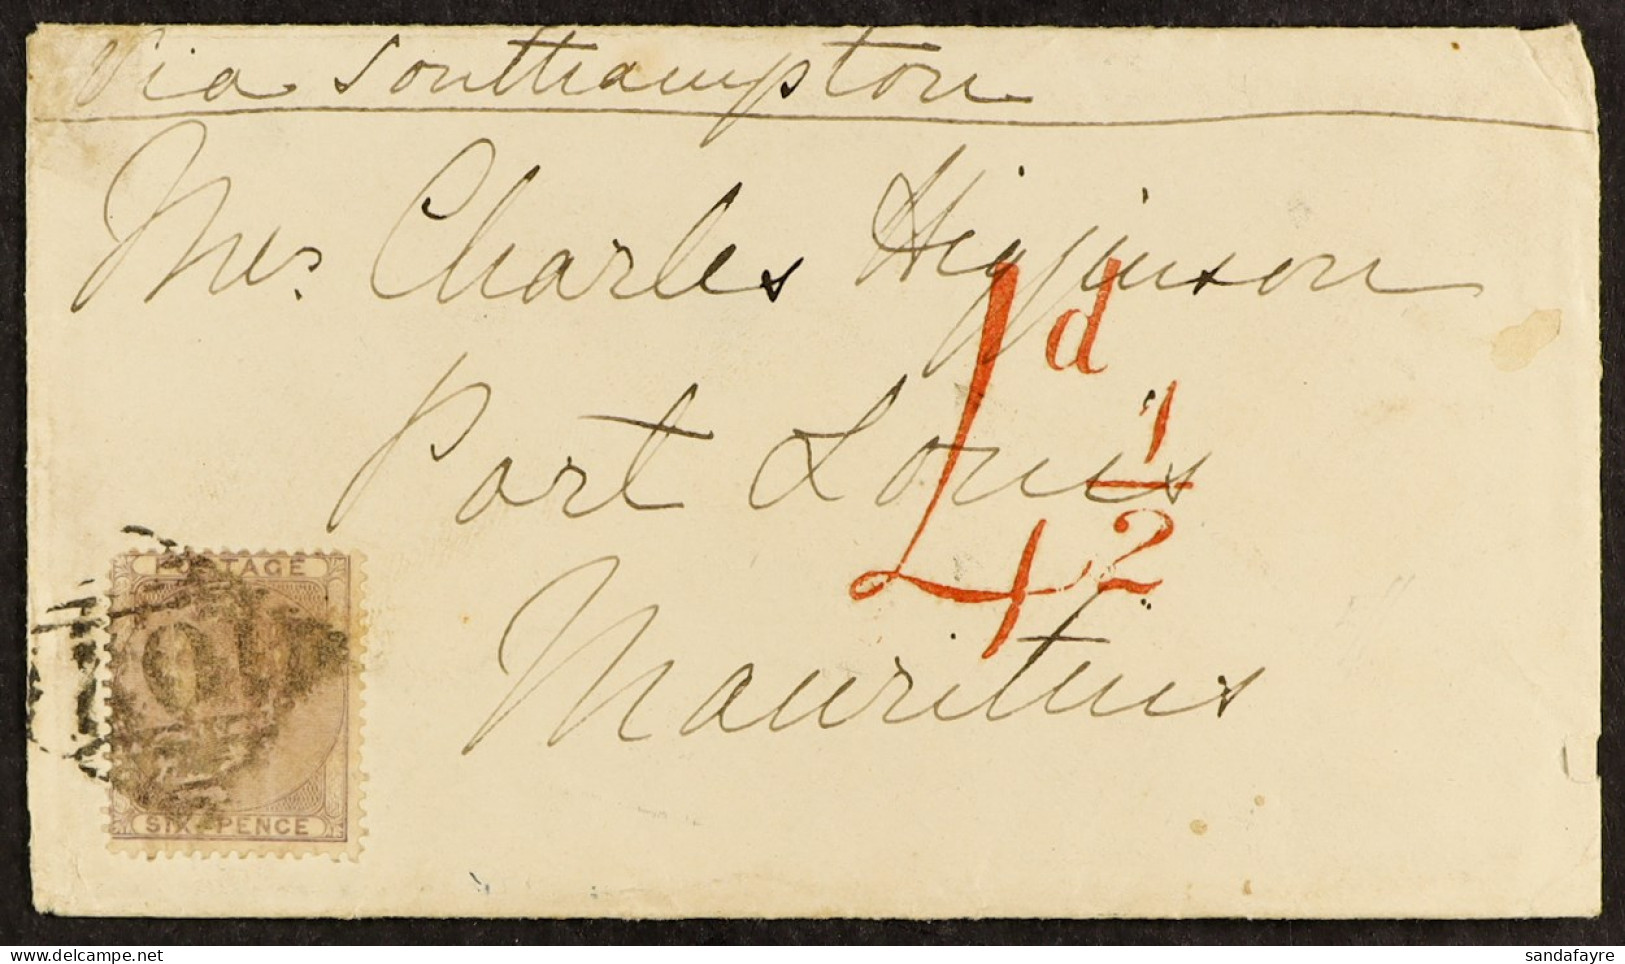 Via Southampton
Mrs. Charles Higginson
Port Louis
Mauritius
4d 1/2
POSTAGE
SIX-PENCE
sandafayre